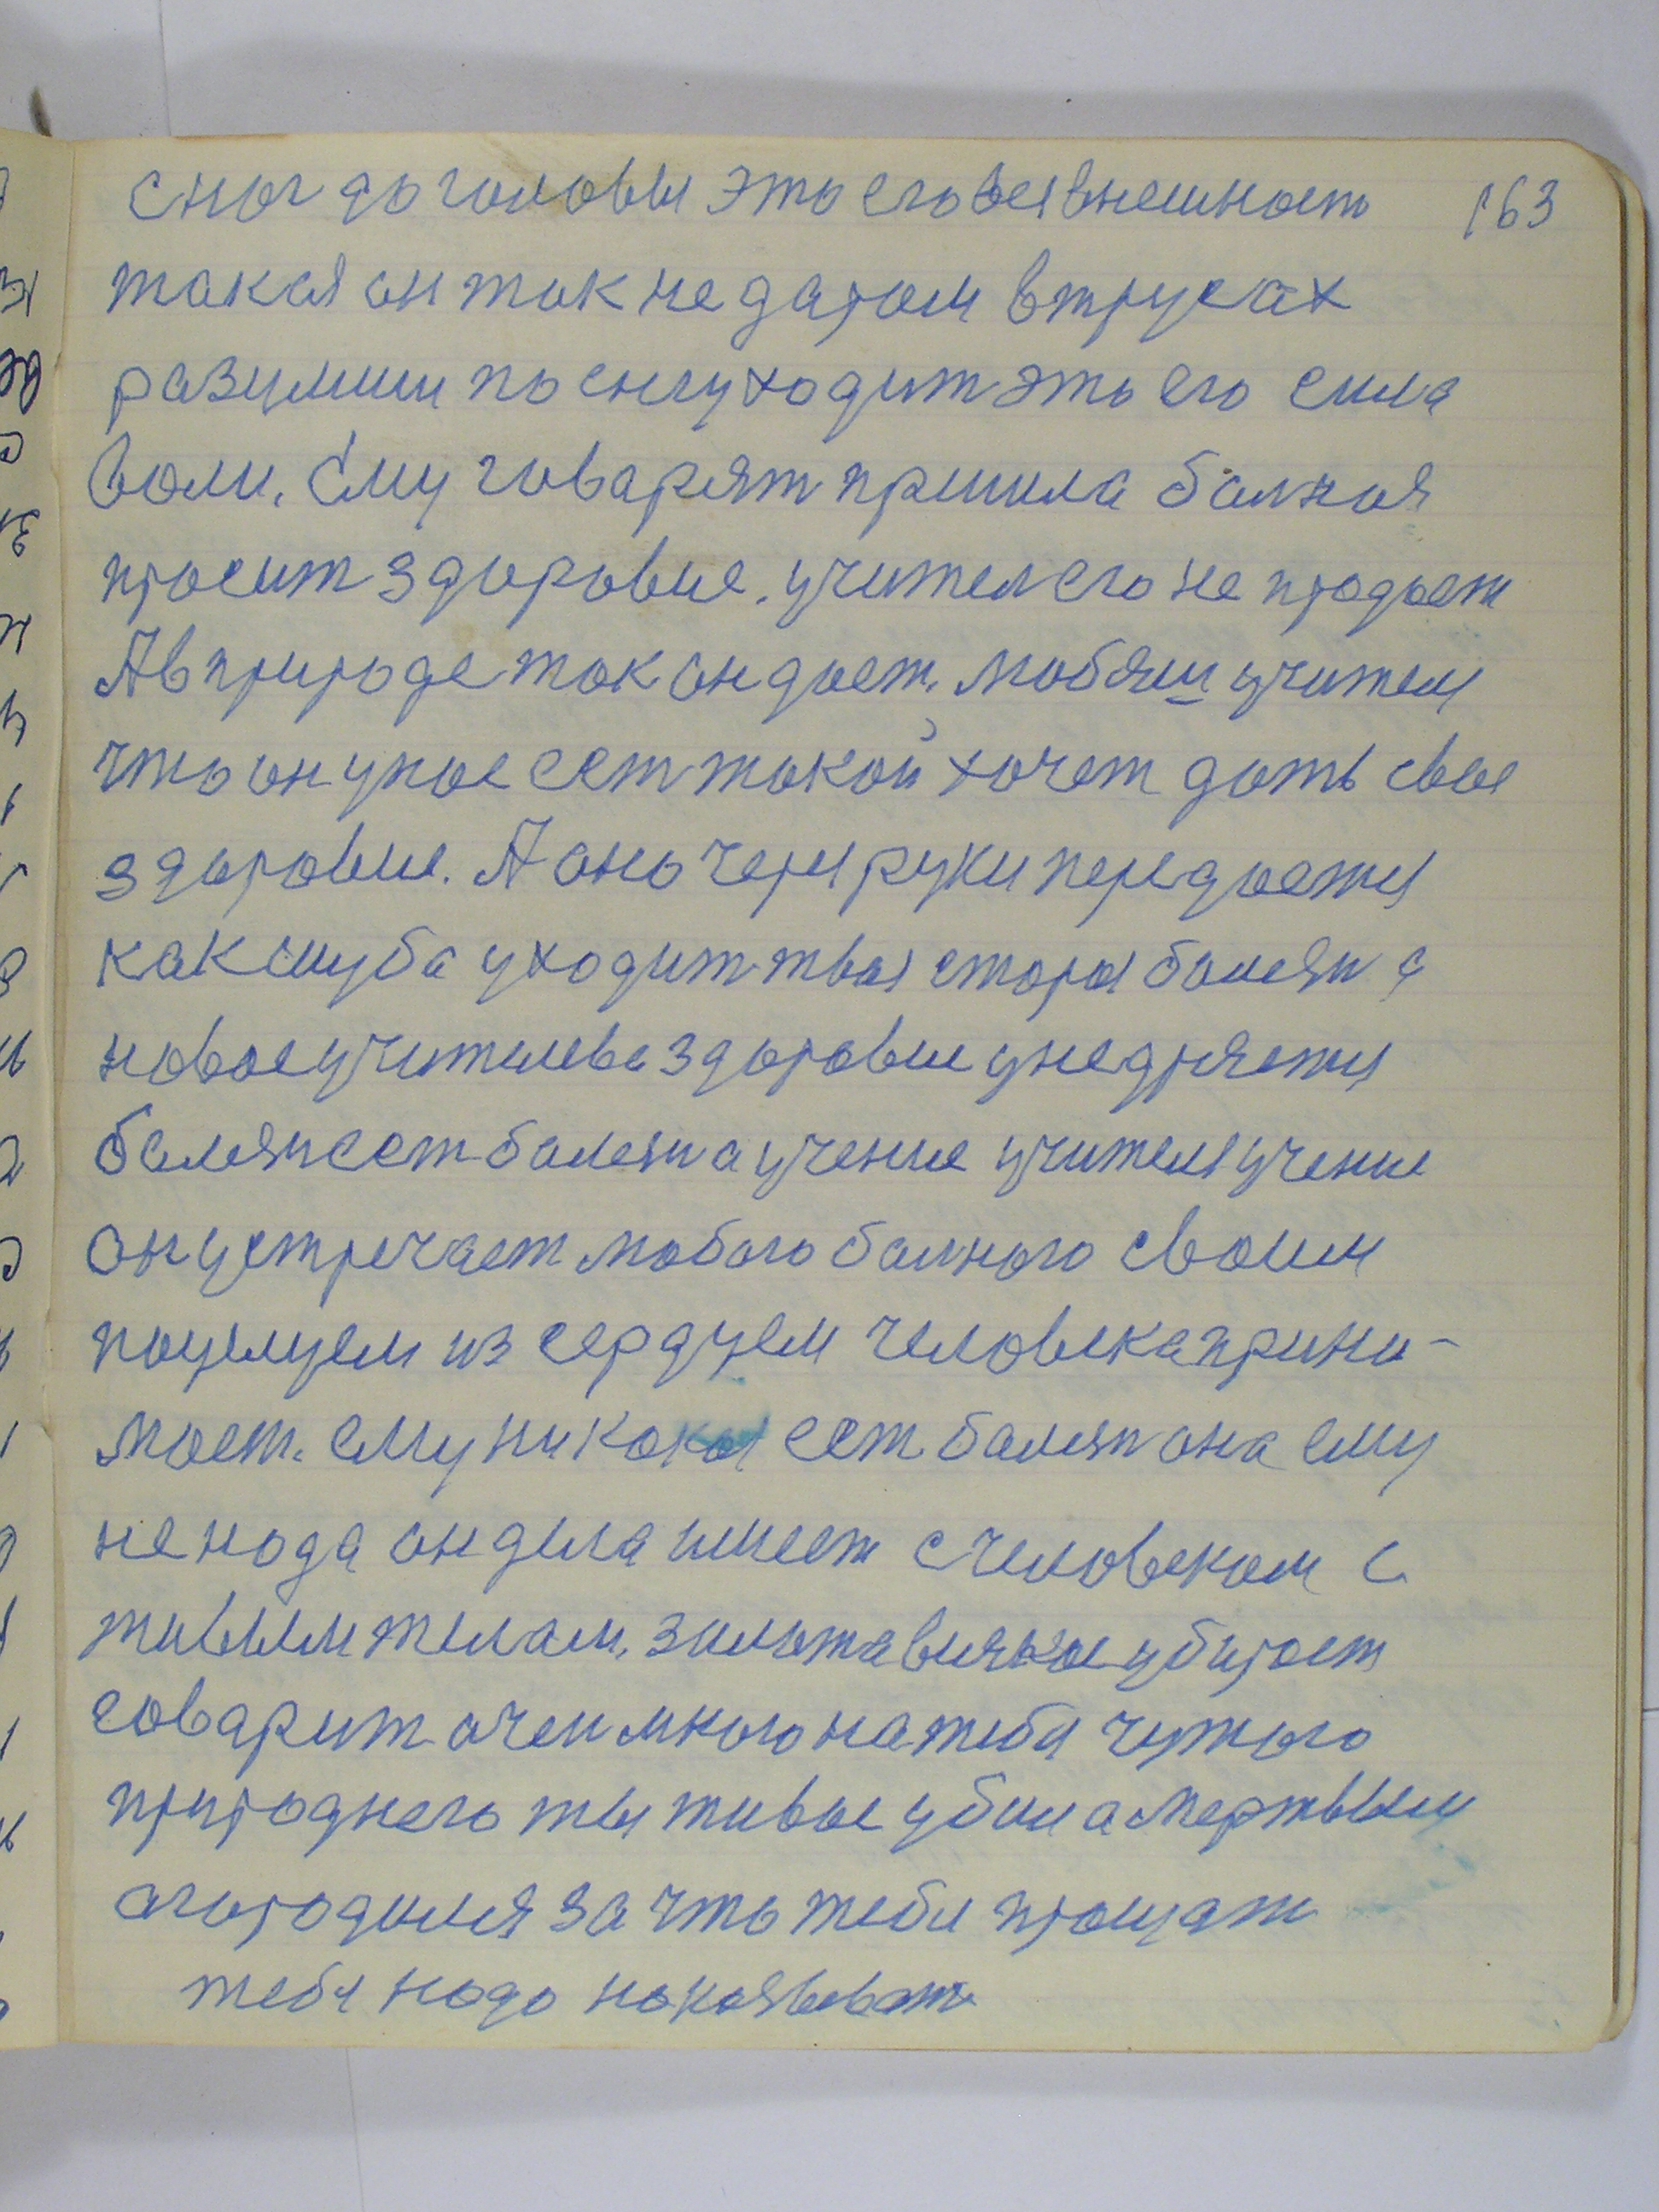 с ног до головы это его вся внешность 163
такая он так не даром в трусах
разумши по снегу ходит это его сила
воли. Ему говарят пришла балная
просит здоровие. учител его не продает
А в природе так он дает. любяш учителя
что он у нас ест такой хочет дать свое
здоровие. А оно через руки передается
как шуба уходит твоя старая болезн а
новое учителева здоровие унедряется
болезн ест болезн а учение учителя учение
он устречает любого балного своим
поцелуем из сердцем человека прини-
мает. ему никакая ест болезн она ему
не нада он дела имеет с человеком с
живым телам. убирает
говарит очен много на тебя чужого
природнего ты живое убил а мертвым
огородился за что тебя прощат
тебя надо наказыват